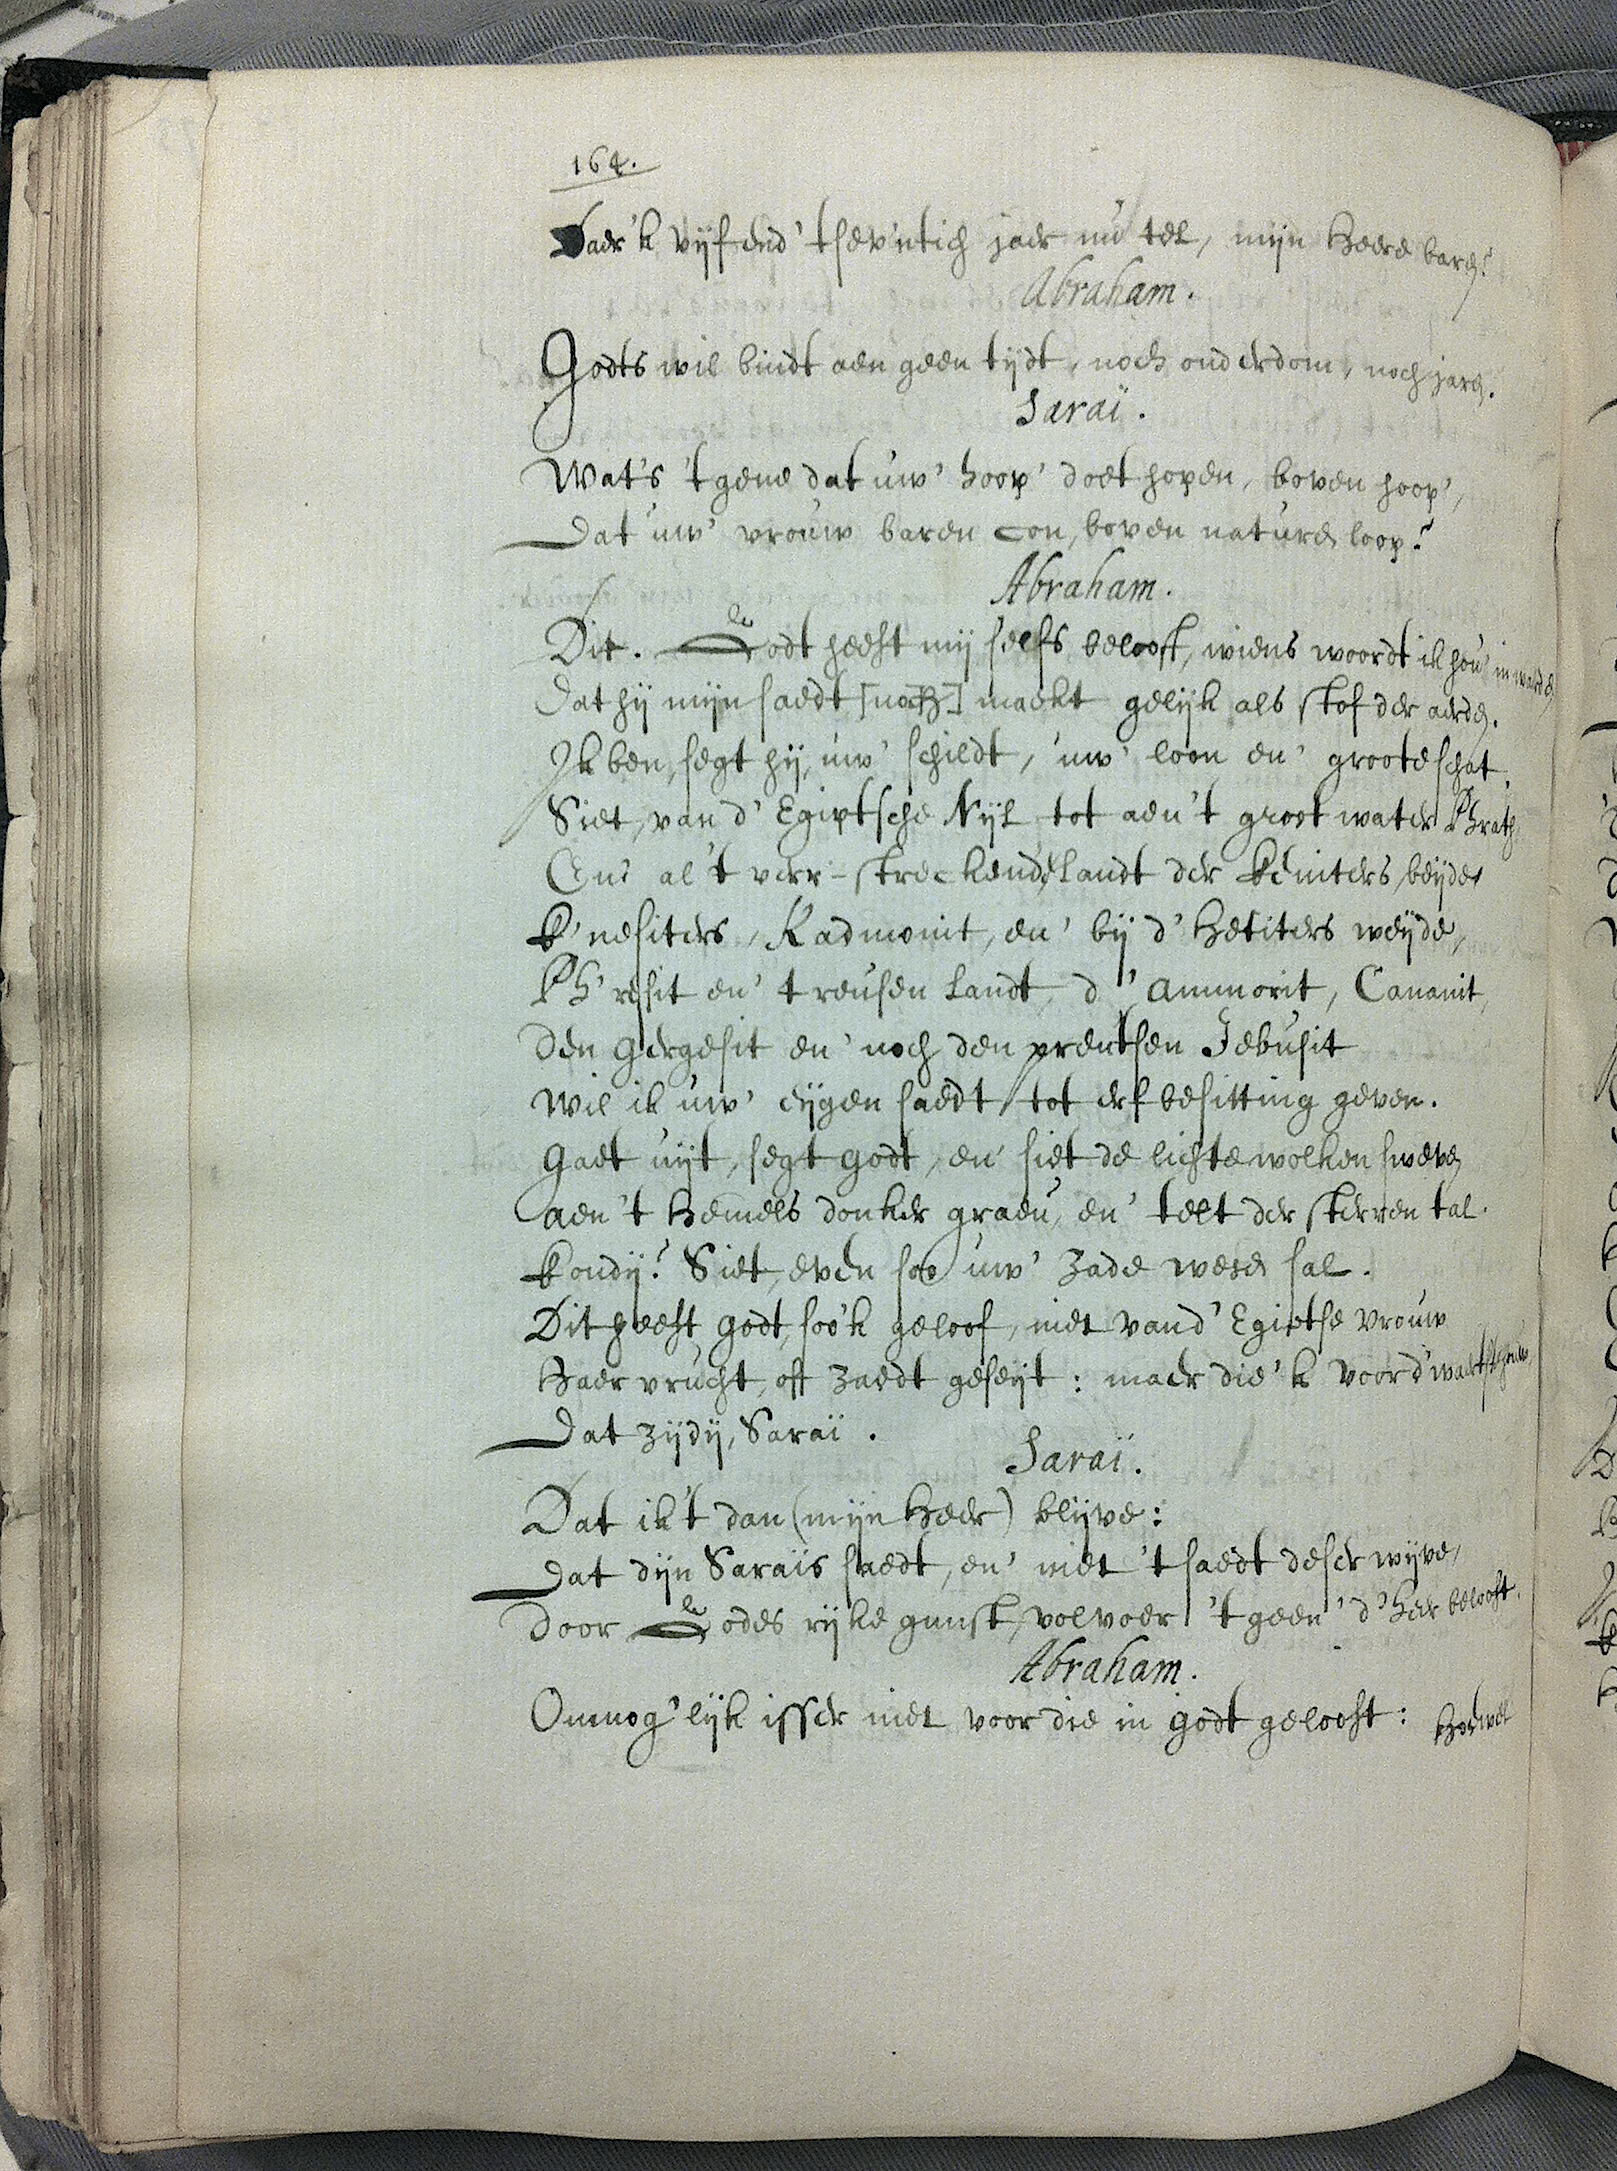 164.
Daer'k vijf end' tsev'ntich jaer nu tel, mijn Heere baren?
Abraham.
Godts wil bindt aen geen tijdt, noch ouderdom, noch jaren.
Saraï.
Wat's 't gene dat uw' hoop' doet hopen, boven hoop',
Dat uw' vrouw baren con, boven naturen loop?
Abraham.
Dit. Godt heeft mij selfs belooft, wiens woordt ik hou' in waerden
Dat hij mijn saedt [noch] maekt gelijk als stof der aerden.
Ik ben, segt hij, uw' schildt, uw' loon en' groote schat.
Siet, van d' Egiptsche Nijl tot aen 't groot water Phrath,
En' al 't verr-streckende Landt der Keniters, beijde
K'nesiters, Kadmonit, en' bij d' Hetiters weijde,
Ph'resit en' t reusen Landt, d' Ammorit, Cananit,
Den Gergesit en' noch den prentsen Jebusit
Wil ik uw' eijgen saedt tot erfbesitting geven.
Gaet uijt, segt Godt, en siet de lichte wolken sweven
aen 't Hemels donker graeu, en' telt der sterren tal.
Kondij? Siet, even soo uw' Zade wesen sal.
Dit heeft Godt, soo'k geloof, niet van d' Egiptse vrouw
Haer vrucht, oft zaedt geseijt: maer die 'k voor d'
Dat zijdij, Saraï.
Saraï.
Dat ik 't dan (mijn Heer) blijve:
Dat dijn Saraïs saedt, en' niet 't saedt deser wijve,
Door Godes rijke gunst, volvoer 't geen' d' Heer belooft.
Abraham.
Onmog'lijk isser niet voor die in Godt gelooft:
Hoewel